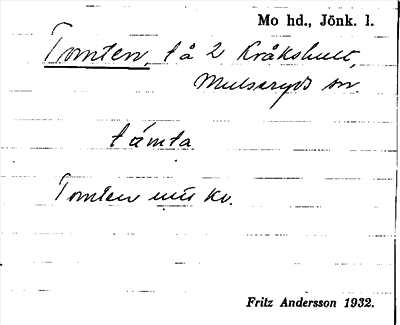 Mo hd., Jönk. l.
Tomten, t å 2 Kråkshult,
Mulseryds sn.
támta
Tomten kv.
Fritz Andersson 1932.